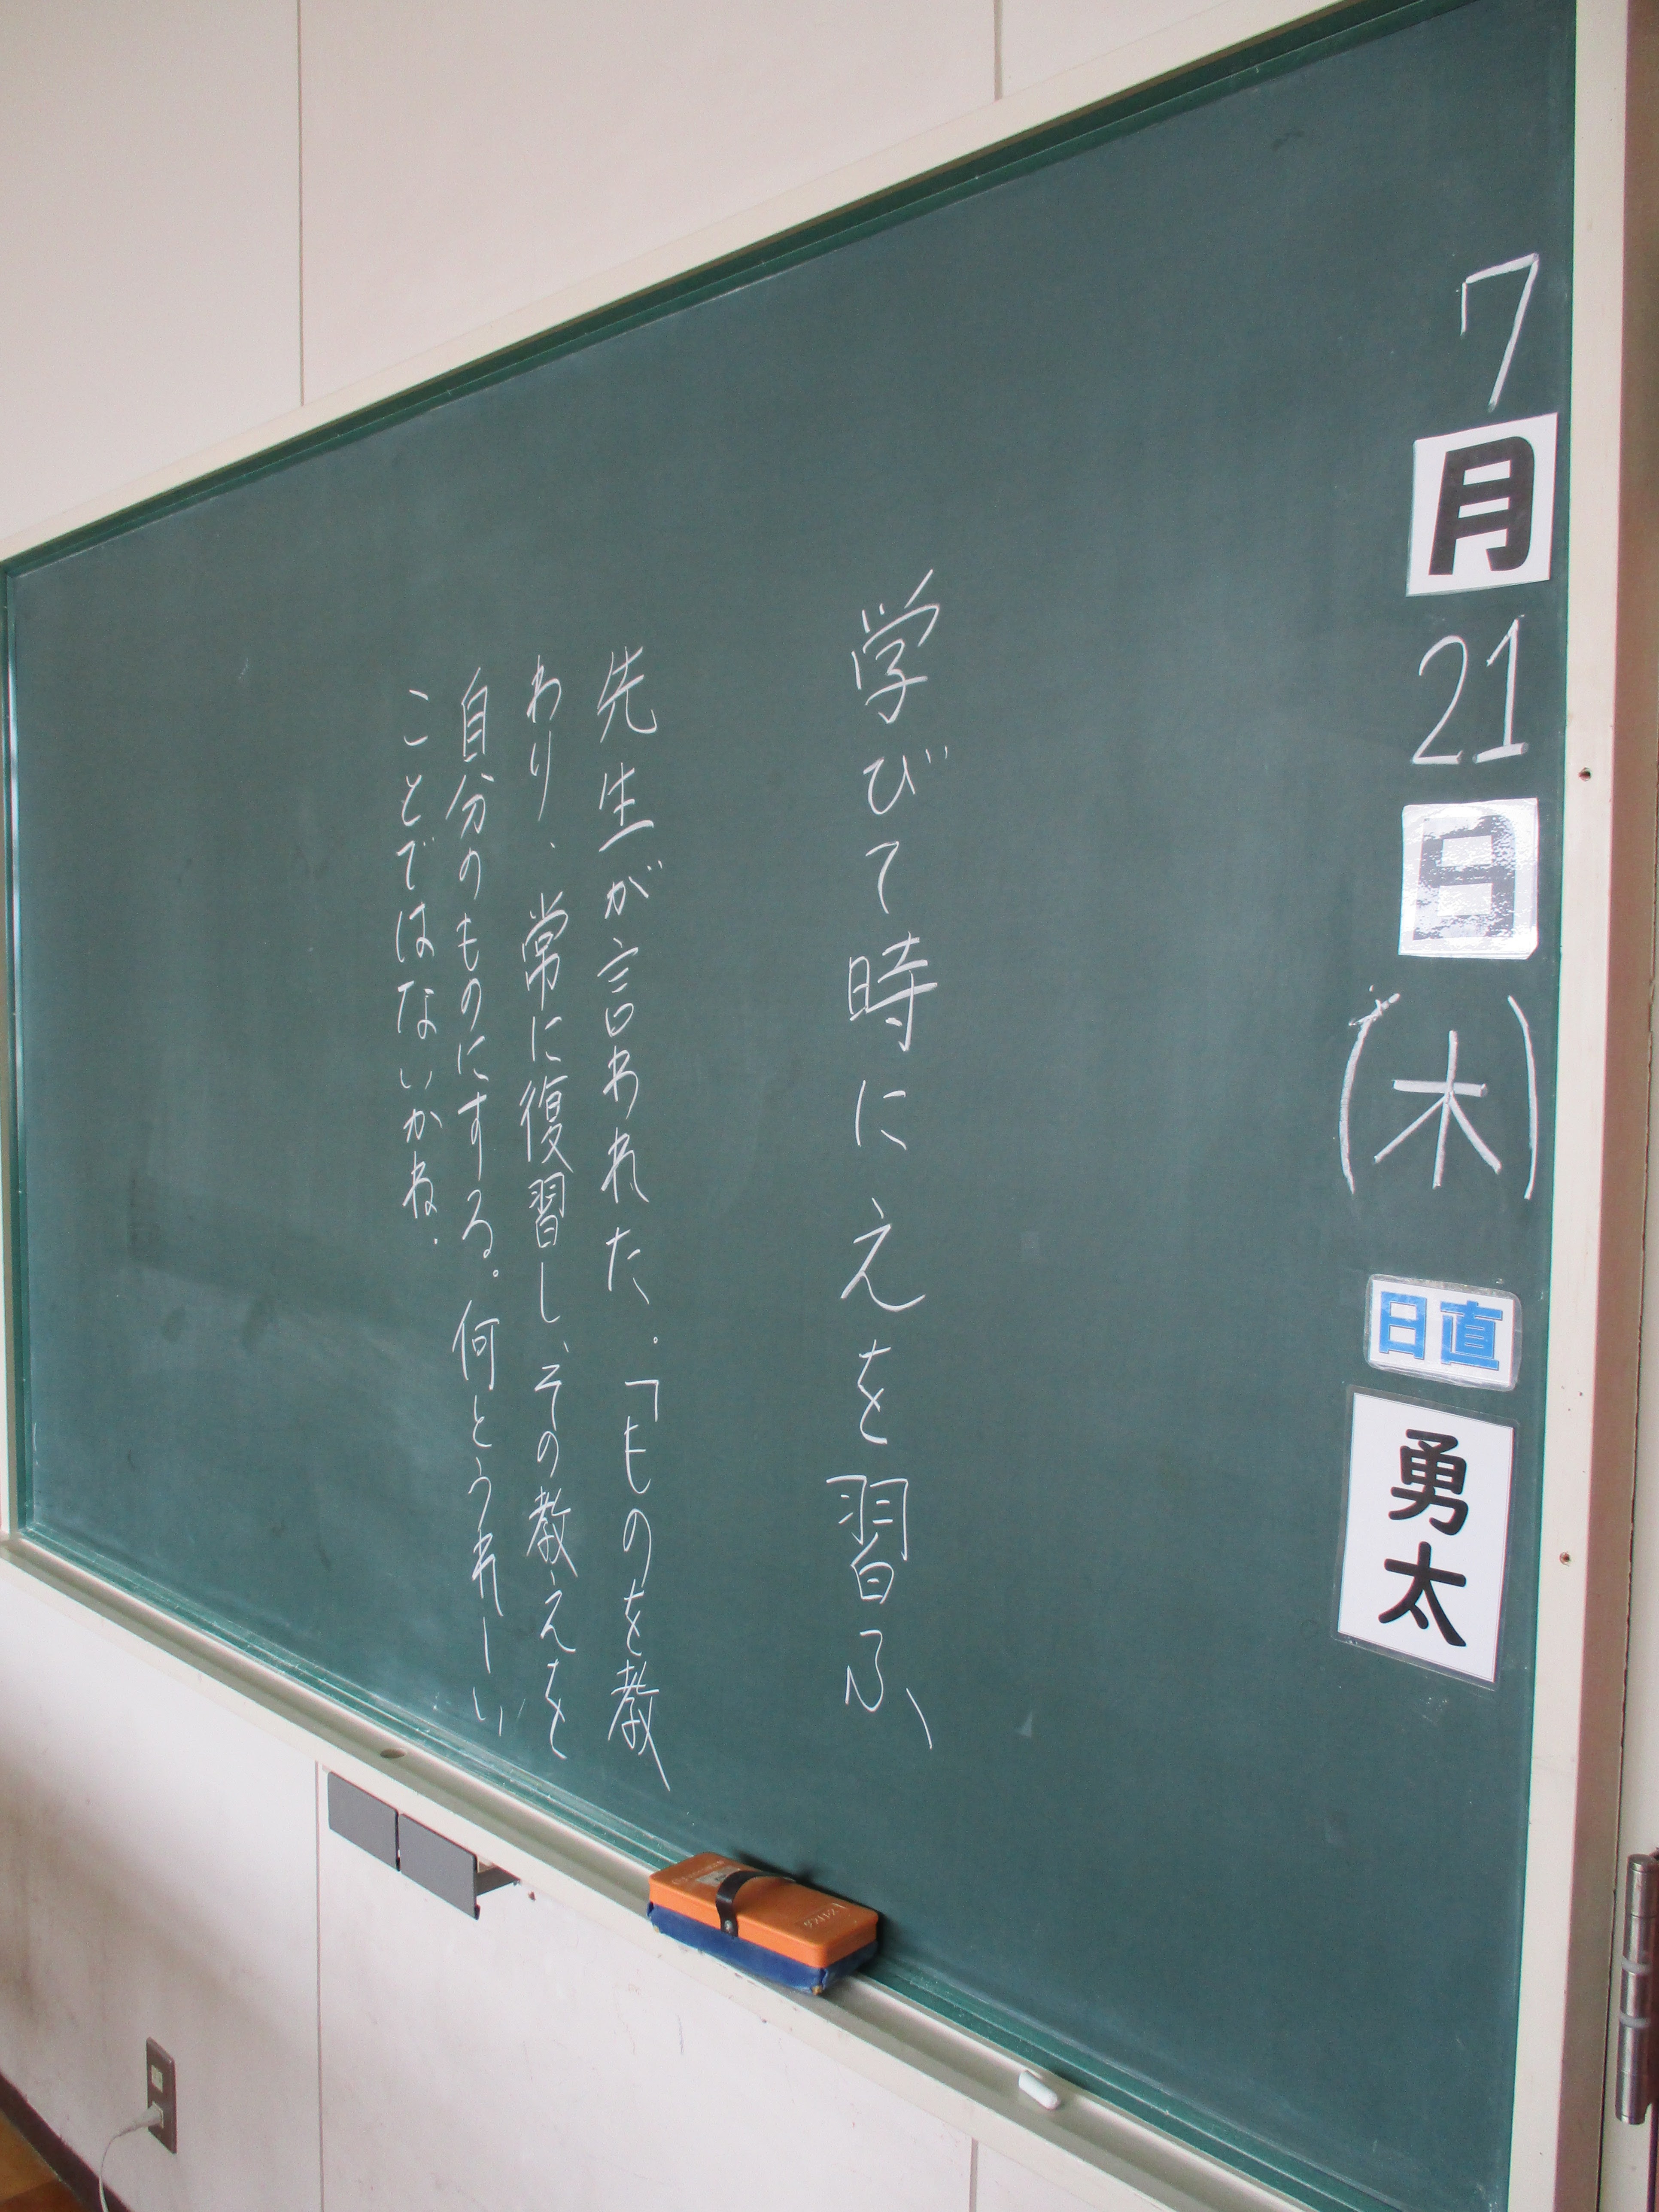 7月21日(木)
日直
勇太
学びて時にえを習ふ
先生が言われた。「ものを教
わり、常に復習し、その教えを
自分のものにする。何とうれしい
ことではないかね。